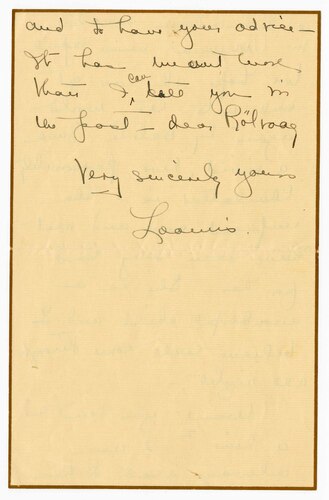 and to have your advice –
It has meant more
than I can tell you in
the past – dear Rölvaag
Very sincerely yours
Loomis.